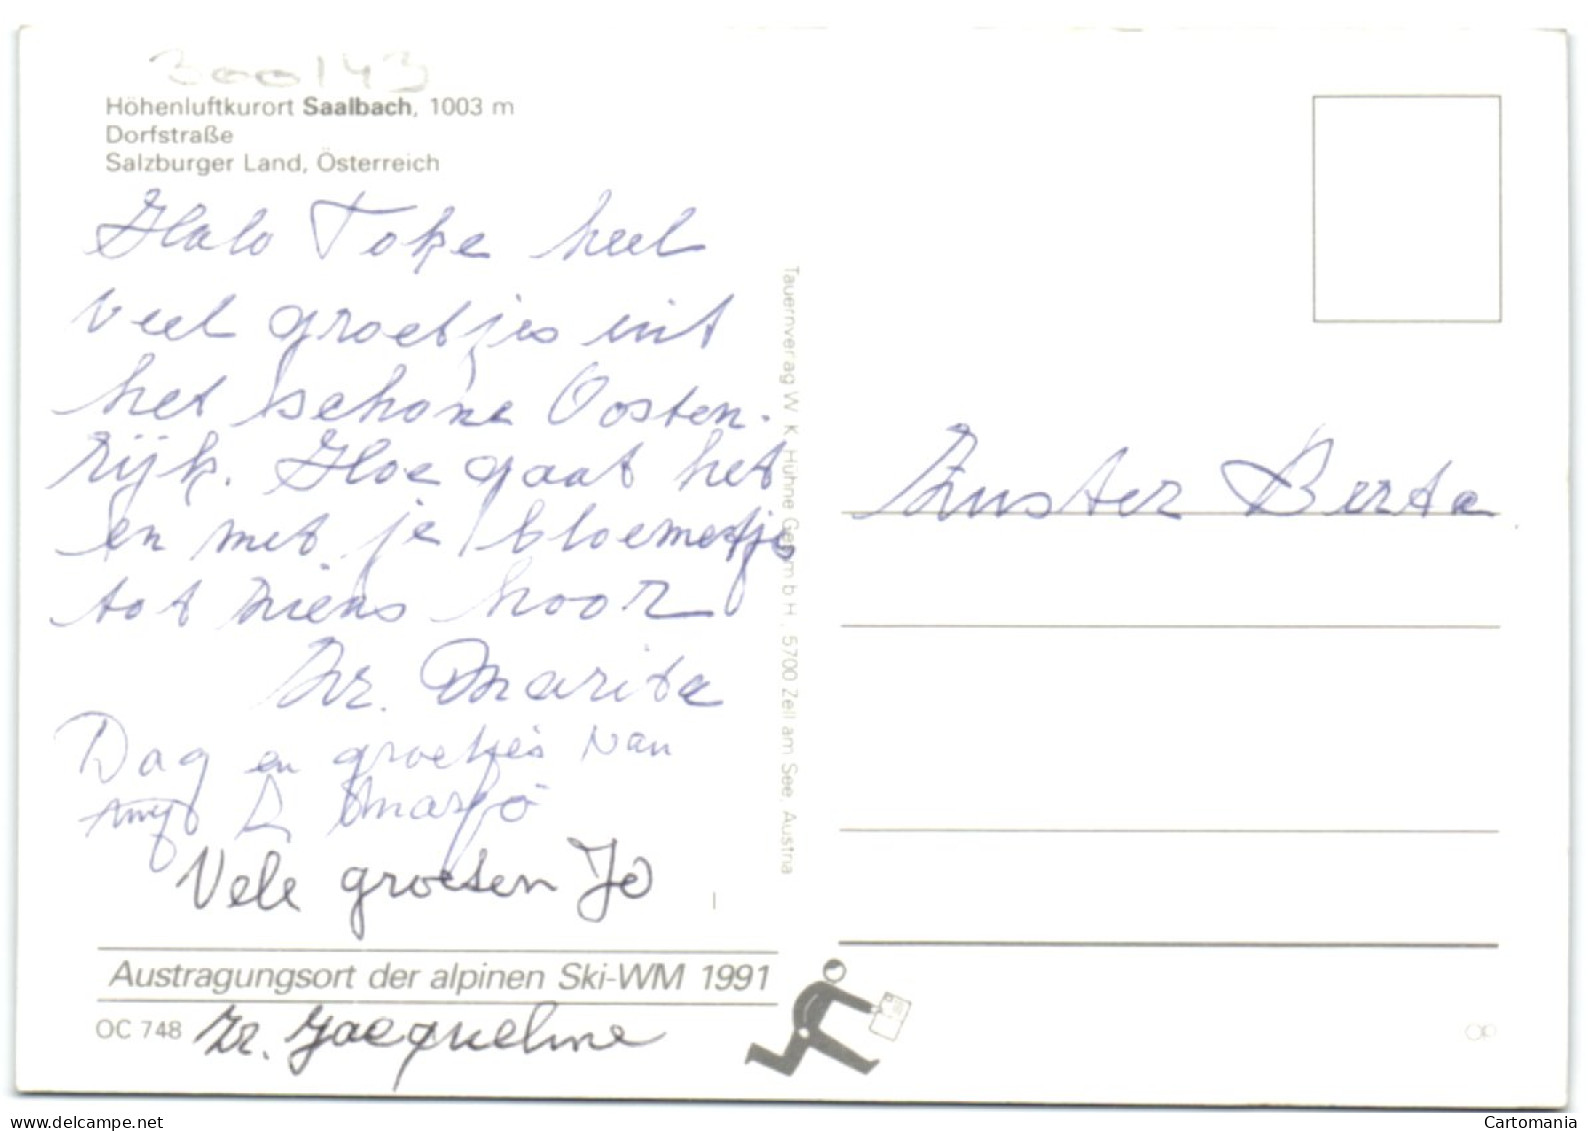 300143
Höhenluftkurort Saalbach, 1003 m
Dorfstraße
Salzburger Land, Österreich
Halo Tokje heel
veel groetjes uit
het schone Oosten-
rijk. Hoe gaat het
en met je bloemetjes
tot ziens hoor
Zr. Marita
Dag en groetjes van
Marjo
Vele groeten Jo
Austragungsort der alpinen Ski-WM 1991
OC 748 Zr. Jacqueline
Tauernverlag W. K. Huhne Ges.m.b.H., 5700 Zell am See, Austria
Zuster Berta
Cartomania